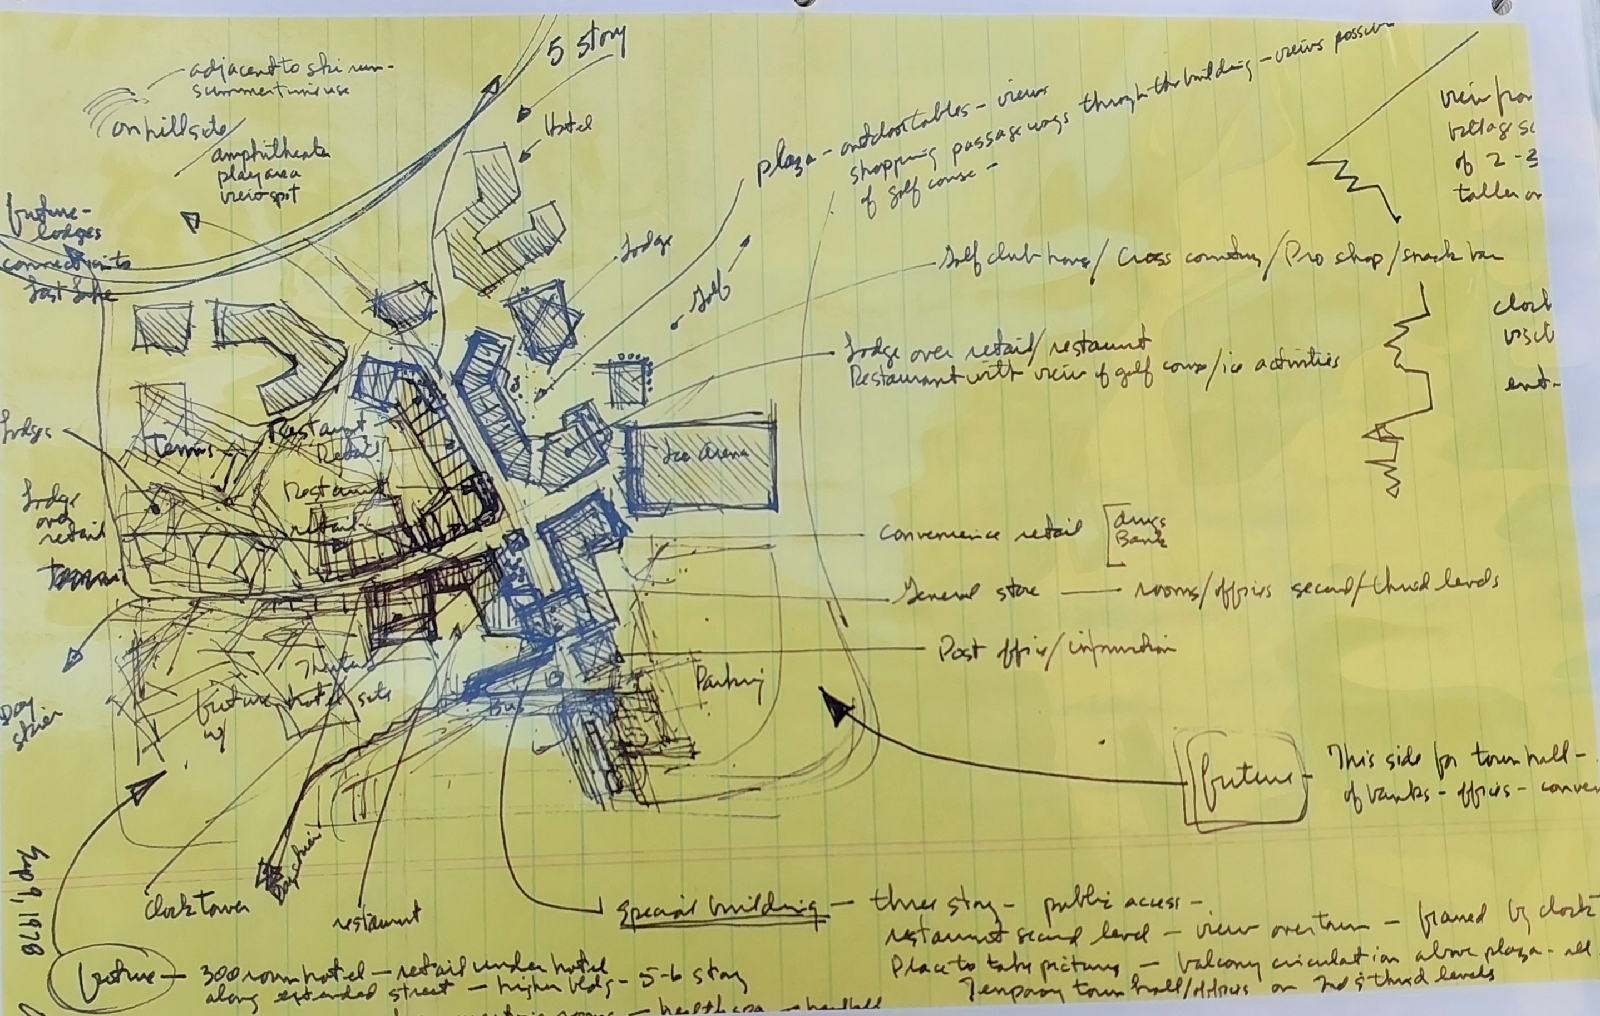 5 story
adjacent to ski run-
summertime use
on hillside/
amphitheater
play area
view spot
Hotel
plaza - outdoor tables - views
shopping passage ways through the building - views possible
of golf course -
view from
village sc
of 2-3
taller or
future-
lodges
connection to
Lost Lake
Lodge
Golf
Golf club house/ Cross country/ Pro shop/ snack bar
clock
visit
Lodge over retail/restaurant
Restaurant with view of golf course/ice activities
ent-
Lodge
Tennis
Restaurant
Retail
Ice Arena
Lodge
over
retail
Restaurant
retail
Convenience retail
drugs
Bank
General store — rooms/offices second/third levels
Post office/information
Parking
Day
skier
future hotel site
w/
Bus
future
This side for town hall -
of banks - offices - conven
Day skier
clock tower
restaurant
Sep 9, 1978
Special building — three story - public access -
restaurant second level - view over town - framed by clock
Place to take pictures - balcony circulation above plaza - all
Temporary town hall/offices on 2nd & third levels
future — 300 room hotel - retail under hotel
along extended street - higher bldg - 5-6 story
rooms - health spa - handball